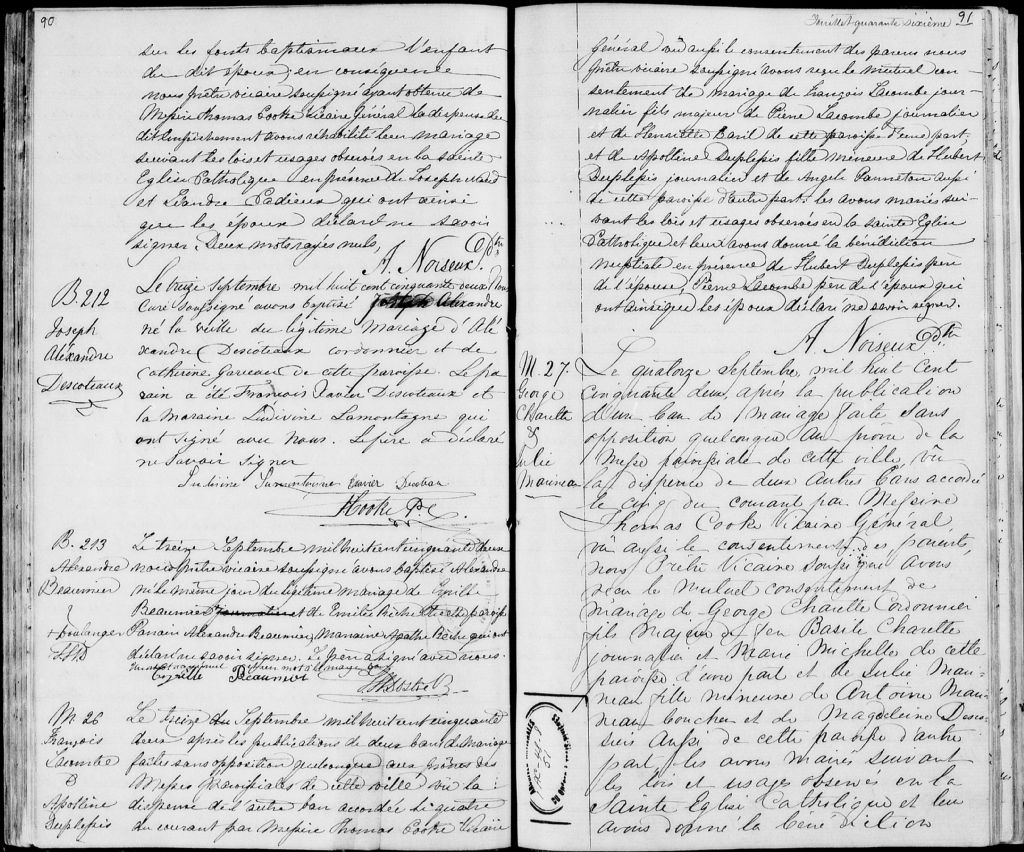 90
sur les fonts baptismaux l'enfant
du dit époux; en conséquence
nous Prêtre vicaire soussigné ayant obtenu de
Messire Thomas Cooke Vicaire Général la dispense du
dit Empêchement avons réhabilité leur mariage
suivant les lois et usages observés en la sainte
Eglise Catholique en présence de Joseph
et Léandre Cadieux qui ont ainsi
que les époux déclaré ne savoir
signer. Deux mots rayés nuls,
A. Noiseux. Ptre
B. 212
Joseph
Aléxandre
Descoteaux
Le treize Septembre mil huit cent cinquante deux Nous
Curé Soussigné avons baptisé Joseph Alexandre
né la veille du légitime Mariage d'Alé
xandre Descoteaux cordonnier et de
Catherine Garceau de cette paroisse. Le pa
rain a été François Xavier Descoteaux et
la Maraine Ludivine Lamontagne qui
ont signé avec Nous. Le père a déclaré
ne savoir signer
Ludivine Lamontagne Xavier
TCooke
B. 213
Alexandre
Beaumier
Boulanger
Le treize Septembre mil huit cent cinquante deux
nous Prêtre vicaire soussigné avons baptisé Alexandre
né le même jour du légitime mariage de Cyrille
Beaumier Journalier et de Emilie Riché de cette paroisse
Parrain Alexandre Beaumier, Marraine Agathe Riché qui ont
déclaré ne savoir signer. Le père a signé avec nous.
Cyrille Beaumier
M 26
François
Lacombe
&
Apolline
Duplessis
Le treize du Septembre mil huit cent cinquante
deux après les publications de deux bans de Mariage
faites sans opposition quelconque aux Prônes des
Messes Paroissiales de cette ville vu la
dispense de l'autre ban accordée le quatre
du courant par Messire Thomas Cooke Vicaire
Feuillet quarante sixième 91
Général vu aussi le consentement des parens nous
Prêtre vicaire soussigné avons reçu le mutuel con-
sentement de mariage de François Lacombe jour-
nalier fils majeur de Pierre Lacombe journalier
et de Henriette Baril de cette paroisse d'une part
et de Apolline Duplessis fille mineure de Hubert
Duplessis journalier et de Angèle Panneton aussi
de cette paroisse d'autre part: les avons mariés sui-
vant les lois et usages observés en la sainte Eglise
Catholique et leur avons donné la bénédiction
nuptiale en présence de Hubert Duplessis père
de l'épouse, Pierre Lacombe père de l'époux qui
ont ainsi que les époux déclaré ne savoir signer.
A. Noiseux. Ptre
M. 27.
George
Charette
&
Julie
Maurneau
Le quatorze Septembre, mil huit cent
cinquante deux, après la publication
d'un ban de Mariage faite sans
opposition quelconque au prône de la
Messe paroissiale de cette ville, vu
la dispence de deux autres bans accordée
le cinq du courant par Messire
Thomas Cooke Vicaire Général,
vu aussi le consentement des parents,
nous Prêtre Vicaire Soussigné avons
reçu le mutuel consentement de
mariage de George Charette Cordonnier
fils majeur de feu Basile Charette
journalier et Marie Michelle de cette
paroisse d'une part et de Julie Maur-
neau fille mineure de Antoine Maur-
neau boucher et de Magdeleine
aussi de cette paroisse d'autre
part, les avons mariés suivant
les lois et usages observés en la
Sainte Eglise Catholique et leur
avons donné la bénédiction